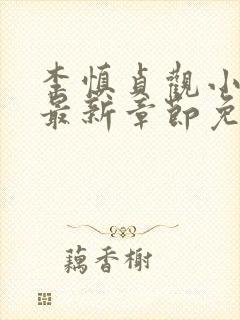 李慎贞觀小
最新章節免
藕香榭